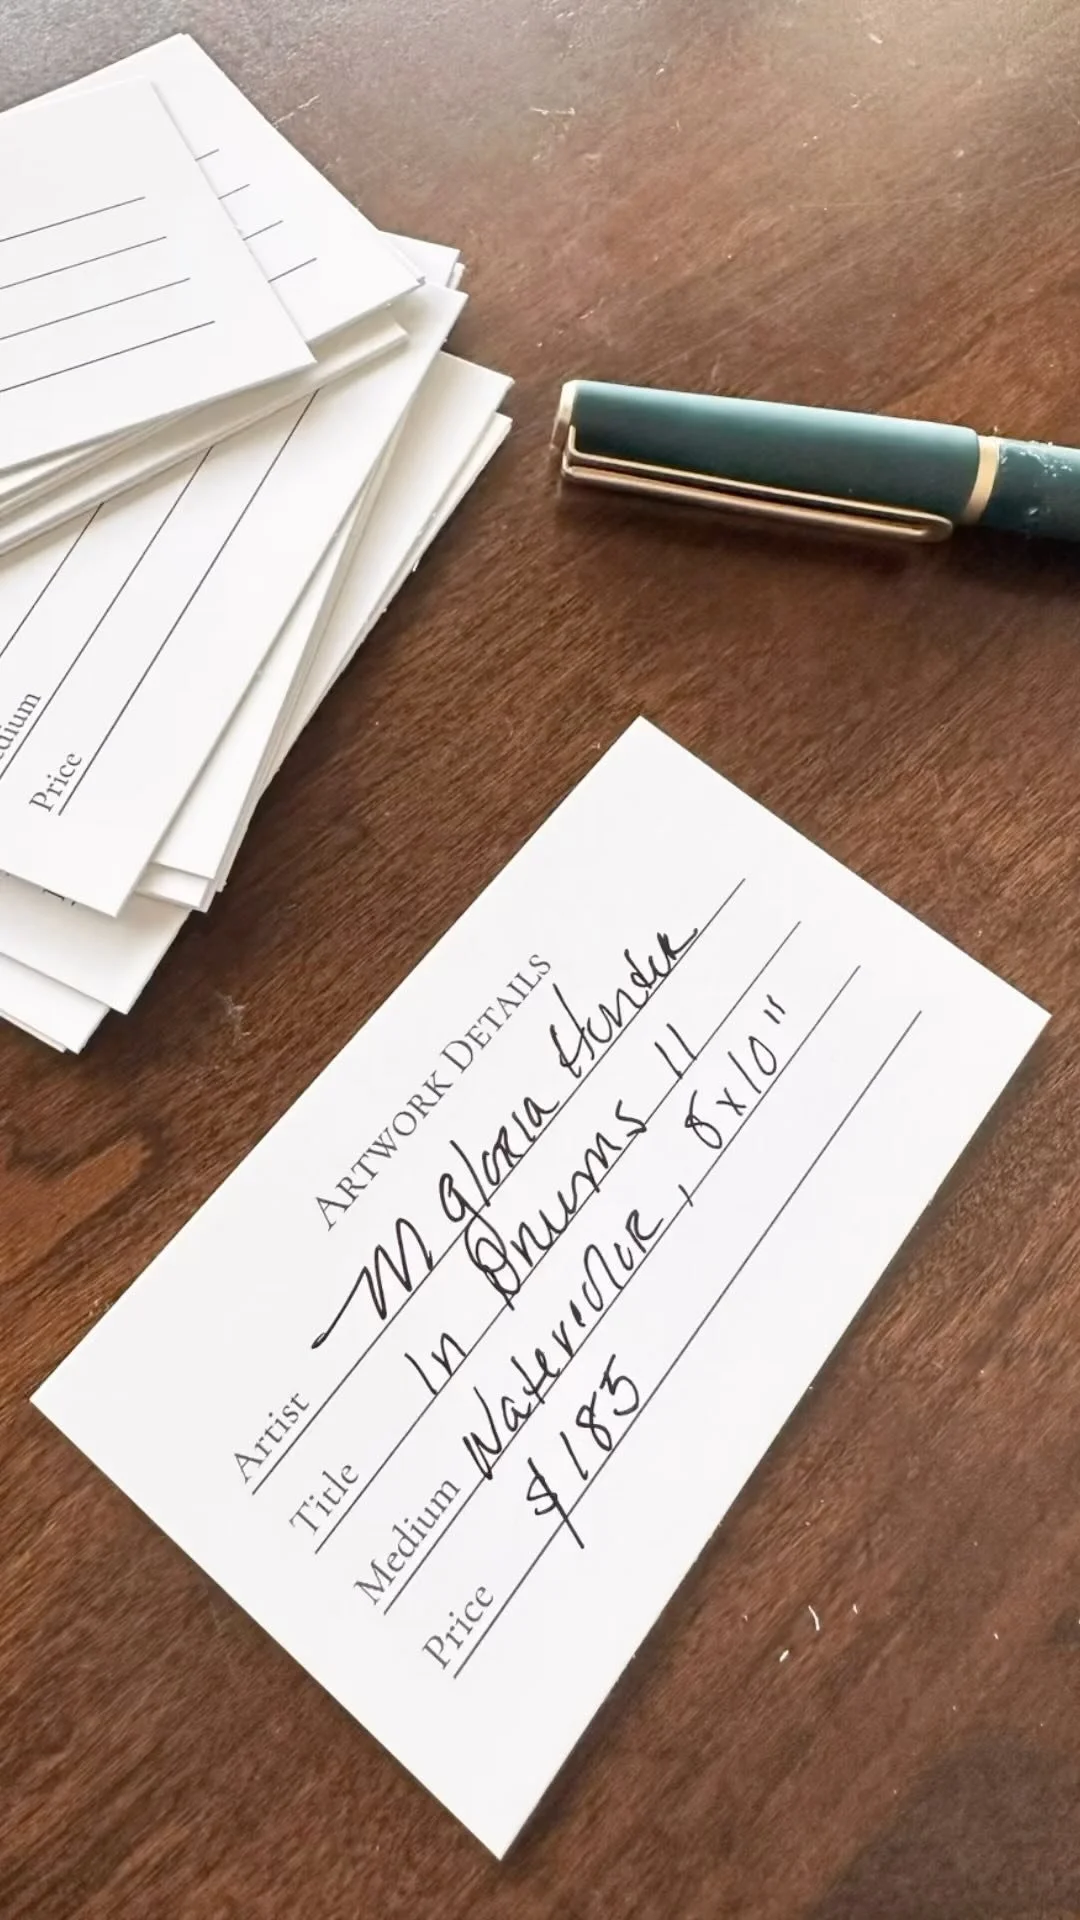 ARTWORK DETAILS
Artist M Gloria Hunter
Title In Drums II
Medium Watercolor, 8x10"
Price $185
Price